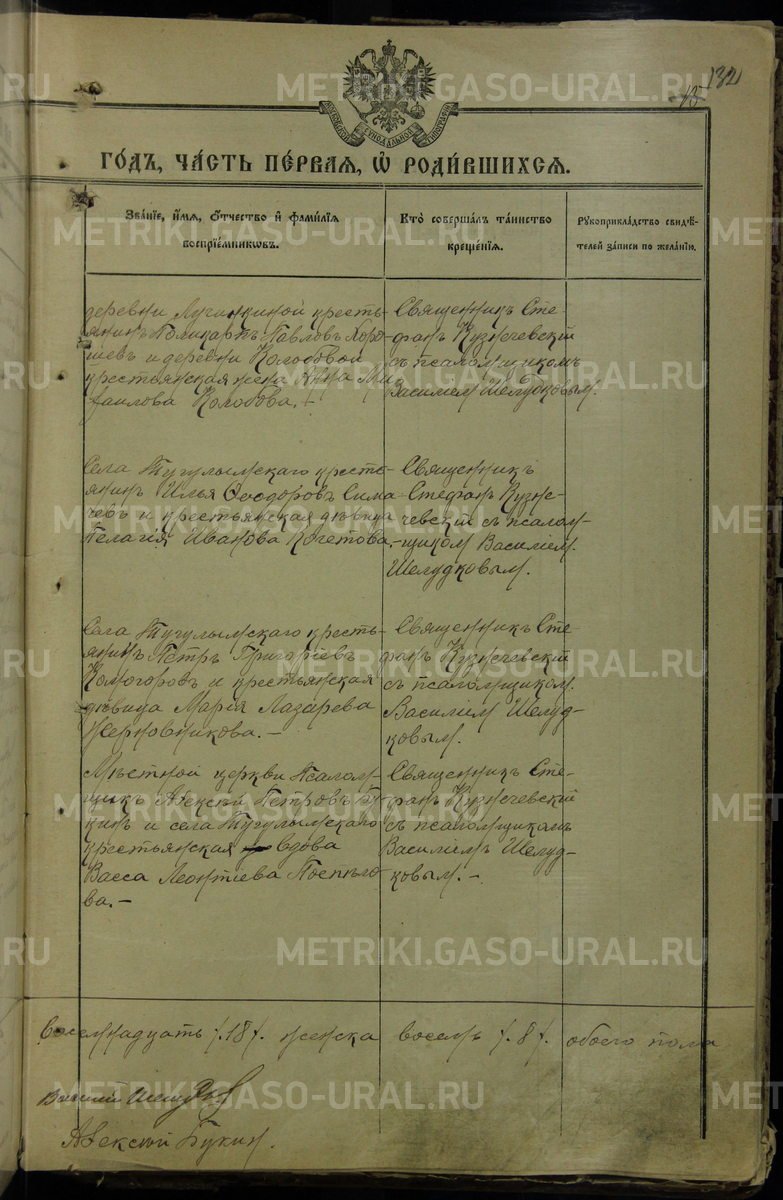 METRIKI.GASO-URAL.RU
132
МОСКОВСКОЙ СѴНОДАЛЬНОЙ ТИПОГРАФІИ
ГО́ДЪ, ЧА́СТЬ ПЕ́РВАЯ, Ѽ РОДИ́ВШИХСЯ.
Зва́нїе, и҆́мя, ѻ҆́тчество и҆ фами́лїя
воспрїе́мниковъ.
Кто̀ соверша́лъ та́инство
креще́нїя.
Рꙋкоприкла́дство свидѣ́-
телей за́писи по жела́нїю.
деревни Лучинкиной кресть-
янинъ Поликарпъ Павловъ Хоро-
шевъ и деревни Колобовой
крестьянская жена Анна Ми-
хаилова Колобова.
Священникъ Сте-
фанъ Кузнечевскій
съ псаломщикомъ
Василіем Шелудковым.
Села Тугулымскаго кресть-
янинъ Илья Ѳеодоровъ Сима-
чевъ и крестьянская дѣвица
Пелагия Иванова Кочетова.-
Священникъ
Стефанъ Кузне-
чевскій съ псалом-
щиком Василіем
Шелудковым.
Села Тугулымскаго кресть-
янинъ Петръ Григоріевъ
Коногоровъ и крестьянская
дѣвица Марія Лазарева
Жерновникова.-
Священникъ Сте-
фанъ Кузнечевскій
съ псаломщиком
Василием Шелуд-
ковым.
Мѣстной церкви Псалом-
щикъ Алексѣй Петровъ Бу-
кинъ и села Тугулымскаго
крестьянская вдова
Васса Леонтіева Поспѣло-
ва.-
Священникъ Сте-
фанъ Кузнечевскій
съ псаломщикам
Василіемъ Шелуд-
ковым.-
Восемнадцать /.18/. женска восемь /.8/. обоего пола
Василій
Алексѣй Букин.